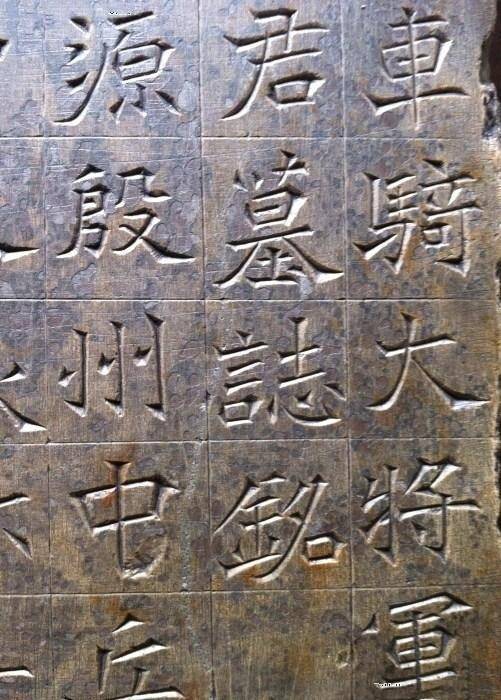 車騎大將軍
君墓誌銘
源殷州中丘